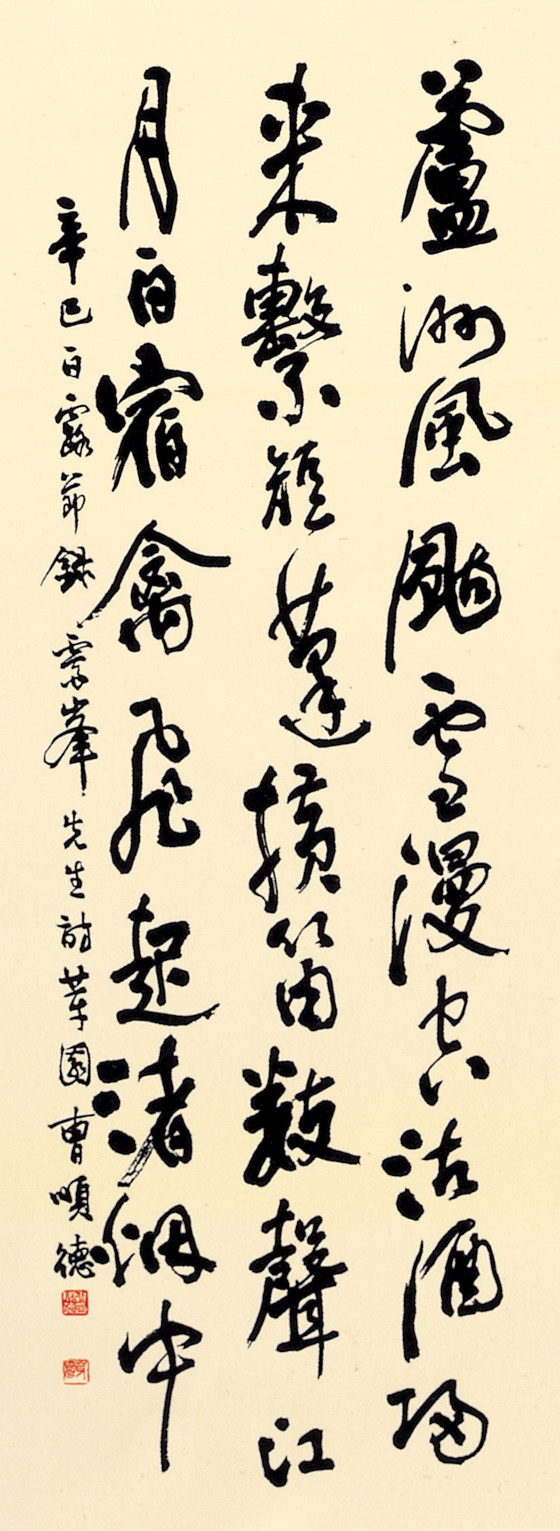 蘆洲風颭雪漫空沽酒歸
來繫短蓬橫笛數聲江
月白宿禽飛起渚烟中
辛巳白露節錄雲峯先生詩草園曹順德